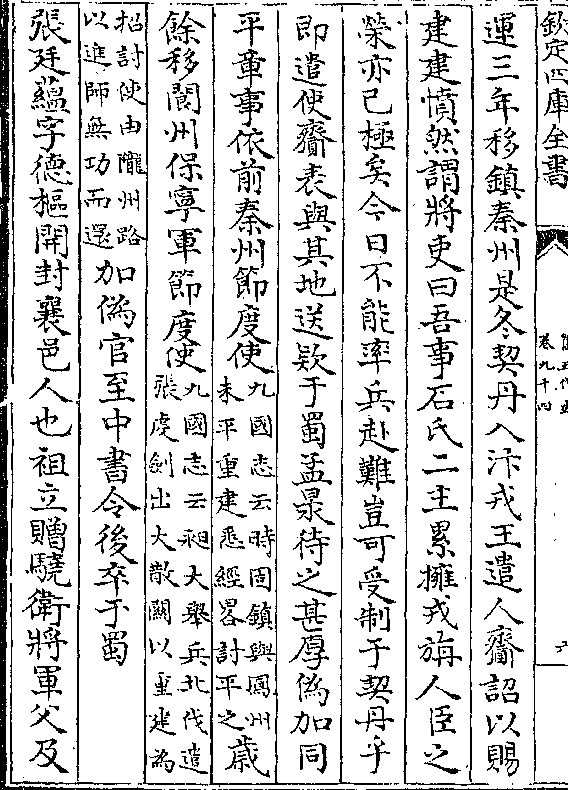 欽定四庫全書
卷九十四
六
運三年移鎮秦州是冬契丹入汴戎王遣人齎詔以賜
建建憤然謂將吏曰吾事石氏二主累擁戎旃人臣之
榮亦已極矣今日不能率兵赴難豈可受制于契丹乎
即遣使齎表與其地送欵于蜀孟㫤待之甚厚偽加同
平章事依前秦州節度使九國志云時固鎮與鳳州未平重建悉經畧討平之歲
餘移閬州保寧軍節度使九國志云昶大舉兵北伐遣張虔釗出大散關以重建為
招討使由隴州路以進師無功而還加偽官至中書令後卒于蜀
張廷蘊字德樞開封襄邑人也祖立贈驍衛將軍父及